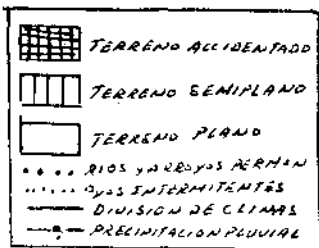 TERRENO ACCIDENTADO
TERRENO SEMIPLANO
TERRENO PLANO
RIOS y ARROYOS PERMAN
INTERMITENTES
DIVISION DE CLIMAS
PRECIPITACION PLUVIAL